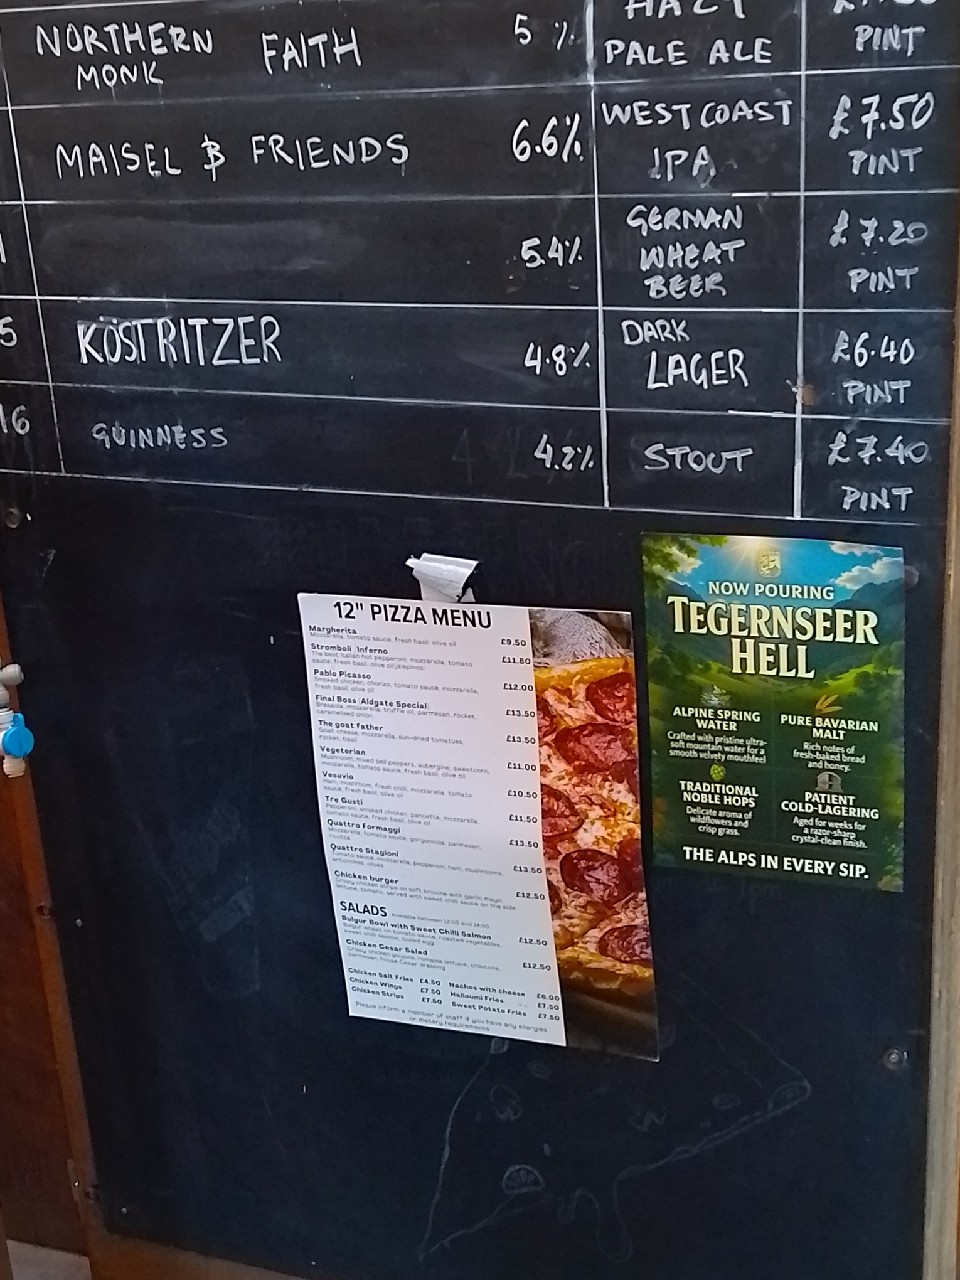 HAZY
NORTHERN MONK FAITH 5 % PALE ALE PINT
MAISEL & FRIENDS 6.6% WEST COAST IPA £7.50 PINT
5.4% GERMAN WHEAT BEER £7.20 PINT
5 KÖSTRITZER 4.8% DARK LAGER £6.40 PINT
16 GUINNESS 4.2% STOUT £7.40 PINT
12" PIZZA MENU
Margherita £9.50
Mozzarella, tomato sauce, fresh basil, olive oil
Stromboli (Inferno £11.80
The best Italian hot pepperoni, mozzarella, tomato
sauce, fresh basil, olive oil,
Pablo Picasso £12.00
Smoked chicken, chorizo, tomato sauce, mozzarella,
fresh basil, olive oil
Final Boss (Aldgate Special) £13.50
mozzarella, truffle oil, parmesan, rocket,
caramelised onion
The goat father £13.50
Goat cheese, mozzarella, sun-dried tomatoes,
rocket, basil
Vegeterian £11.00
Mushroom, mixed bell peppers, aubergine, sweetcorn,
mozzarella, tomato sauce, fresh basil, olive oil
Vesuvio £10.50
Ham, mushroom, fresh chilli, mozzarella, tomato
sauce, fresh basil, olive oil
Tre Gusti £11.50
Pepperoni, smoked chicken, pancetta, mozzarella,
tomato sauce, fresh basil, olive oil
Quattro Formaggi £13.50
Mozzarella, tomato sauce, gorgonzola, parmesan,
ricotta
Quattro Stagioni £13.50
Tomato sauce, mozzarella, pepperoni, ham, mushrooms,
artichokes, olives
Chicken burger £12.50
Crispy chicken strips on soft brioche with garlic mayo,
lettuce, tomato, served with sweet chilli sauce on the side
SALADS
Bulgur Bowl with Sweet Chilli Salmon £12.50
Bulgur wheat on tomato sauce, roasted vegetables,
sweet chilli salmon, boiled egg
Chicken Cesar Salad £12.50
Crispy chicken goujons, romaine lettuce, croutons,
parmesan, house Cesar dressing
Chicken Salt Fries £4.50 Nachos with cheese £6.00
Chicken Wings £7.50 Halloumi Fries £7.50
Chicken Strips £7.50 Sweet Potato Fries £7.50
Please inform a member of staff if you have any allergies
or dietary requirements
NOW POURING
TEGERNSEER
HELL
ALPINE SPRING
WATER
Crafted with pristine ultra-
soft mountain water for a
smooth velvety mouthfeel
PURE BAVARIAN
MALT
Rich notes of
fresh-baked bread
and honey.
TRADITIONAL
NOBLE HOPS
Delicate aroma of
wildflowers and
crisp grass.
PATIENT
COLD-LAGERING
Aged for weeks for
a razor-sharp
crystal-clean finish.
THE ALPS IN EVERY SIP.